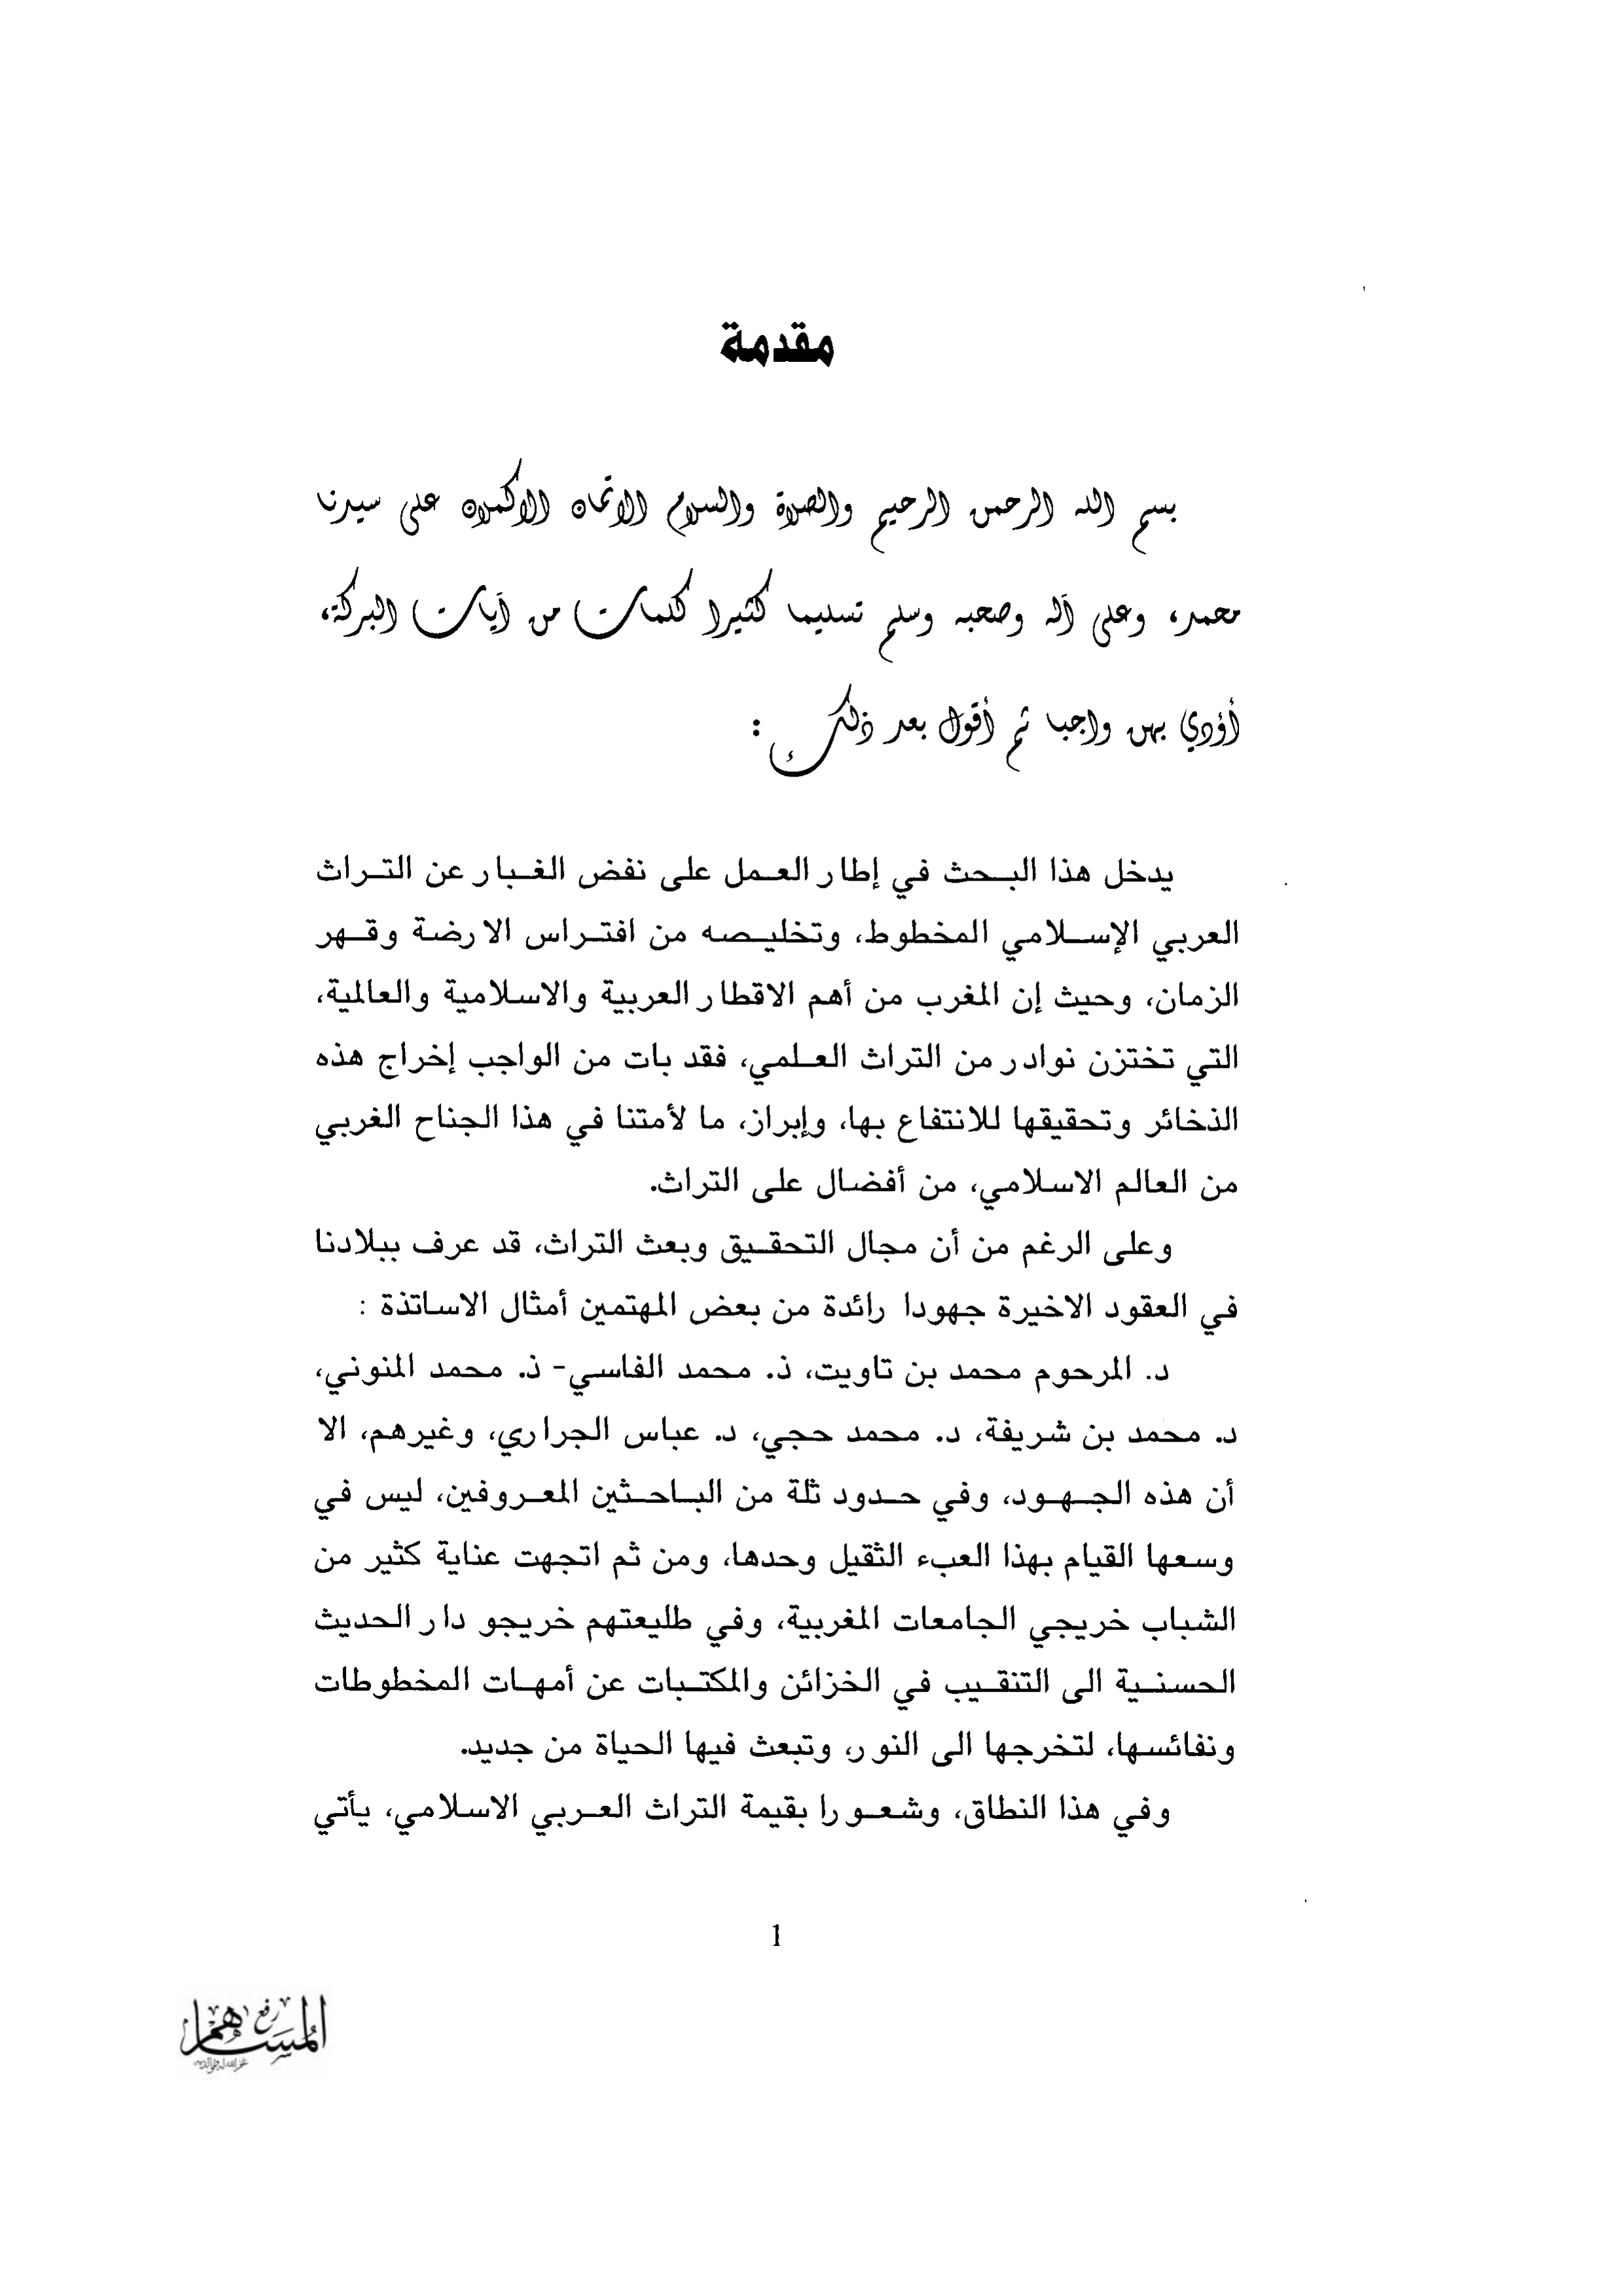 مقدمة
بسم الله الرحمن الرحيم والصلاة والسلام الاتمان الاكملان على سيدنا
محمد، وعلى آله وصحبه وسلم تسليما كثيرا كلمات من آيات البركة،
أؤدي بهن واجبا ثم أقول بعد ذلك :
يدخل هذا البحث في إطار العمل على نفض الغبار عن التراث
العربي الإسلامي المخطوط، وتخليصه من افتراس الارضة وقهر
الزمان، وحيث إن المغرب من أهم الاقطار العربية والاسلامية والعالمية،
التي تختزن نوادر من التراث العلمي، فقد بات من الواجب إخراج هذه
الذخائر وتحقيقها للانتفاع بها، وإبراز، ما لأمتنا في هذا الجناح الغربي
من العالم الاسلامي، من أفضال على التراث.
وعلى الرغم من أن مجال التحقيق وبعث التراث، قد عرف ببلادنا
في العقود الاخيرة جهودا رائدة من بعض المهتمين أمثال الاساتذة :
د. المرحوم محمد بن تاويت، ذ. محمد الفاسي- ذ. محمد المنوني،
د. محمد بن شريفة، د. محمد حجي، د. عباس الجراري، وغيرهم، الا
أن هذه الجهود، وفي حدود ثلة من الباحثين المعروفين، ليس في
وسعها القيام بهذا العبء الثقيل وحدها، ومن ثم اتجهت عناية كثير من
الشباب خريجي الجامعات المغربية، وفي طليعتهم خريجو دار الحديث
الحسنية الى التنقيب في الخزائن والمكتبات عن أمهات المخطوطات
ونفائسها، لتخرجها الى النور، وتبعث فيها الحياة من جديد.
وفي هذا النطاق، وشعورا بقيمة التراث العربي الاسلامي، يأتي
1
رفع
المساهم
غفر الله له ولوالديه